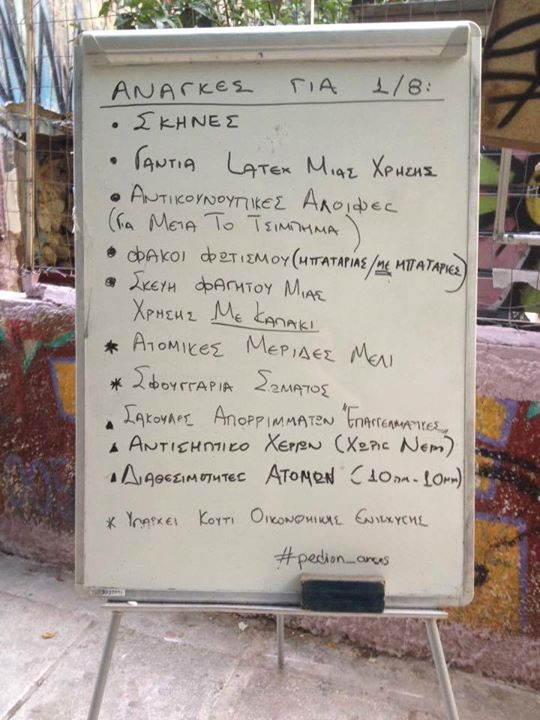 ΑΝΑΓΚΕΣ ΓΙΑ 1/8:
• ΣΚΗΝΕΣ
• ΓΑΝΤΙΑ LATEX ΜΙΑΣ ΧΡΗΣΗΣ
• ΑΝΤΙΚΟΥΝΟΥΠΙΚΕΣ ΑΛΟΙΦΕΣ
(ΓΙΑ ΜΕΤΑ ΤΟ ΤΣΙΜΠΗΜΑ)
• ΦΑΚΟΙ ΦΩΤΙΣΜΟΥ (ΜΠΑΤΑΡΙΑΣ/ΜΕ ΜΠΑΤΑΡΙΕΣ)
• ΣΚΕΥΗ ΦΑΓΗΤΟΥ ΜΙΑΣ
ΧΡΗΣΗΣ ΜΕ ΚΑΠΑΚΙ
* ΑΤΟΜΙΚΕΣ ΜΕΡΙΔΕΣ ΜΕΛΙ
* ΣΦΟΥΓΓΑΡΙΑ ΣΩΜΑΤΟΣ
▲ ΣΑΚΟΥΛΕΣ ΑΠΟΡΡΙΜΜΑΤΩΝ "ΕΠΑΓΓΕΛΜΑΤΙΚΕΣ
▲ ΑΝΤΙΣΗΠΤΙΚΟ ΧΕΡΙΩΝ (ΧΩΡΙΣ ΝΕΡΟ)
▲ ΔΙΑΘΕΣΙΜΟΤΗΤΕΣ ΑΤΟΜΩΝ (10πμ-10μμ)
* ΥΠΑΡΧΕΙ ΚΟΥΤΙ ΟΙΚΟΝΟΜΙΚΗΣ ΕΝΙΣΧΥΣΗΣ
#pedion_areos